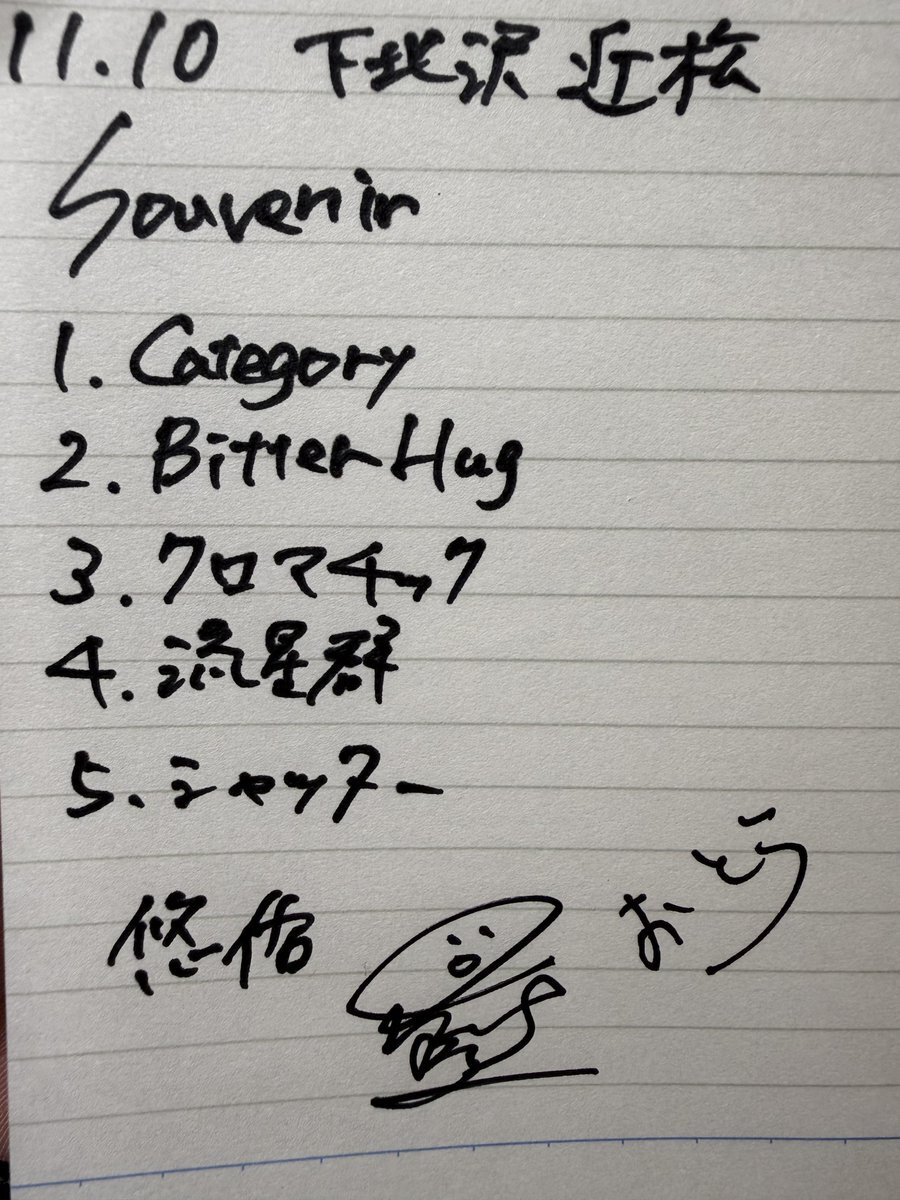 11.10 下北沢 近松
Souvenir
1. Category
2. Bitter Hug
3. クロマチック
4. 流星群
5. シャッター
悠佑
おとう